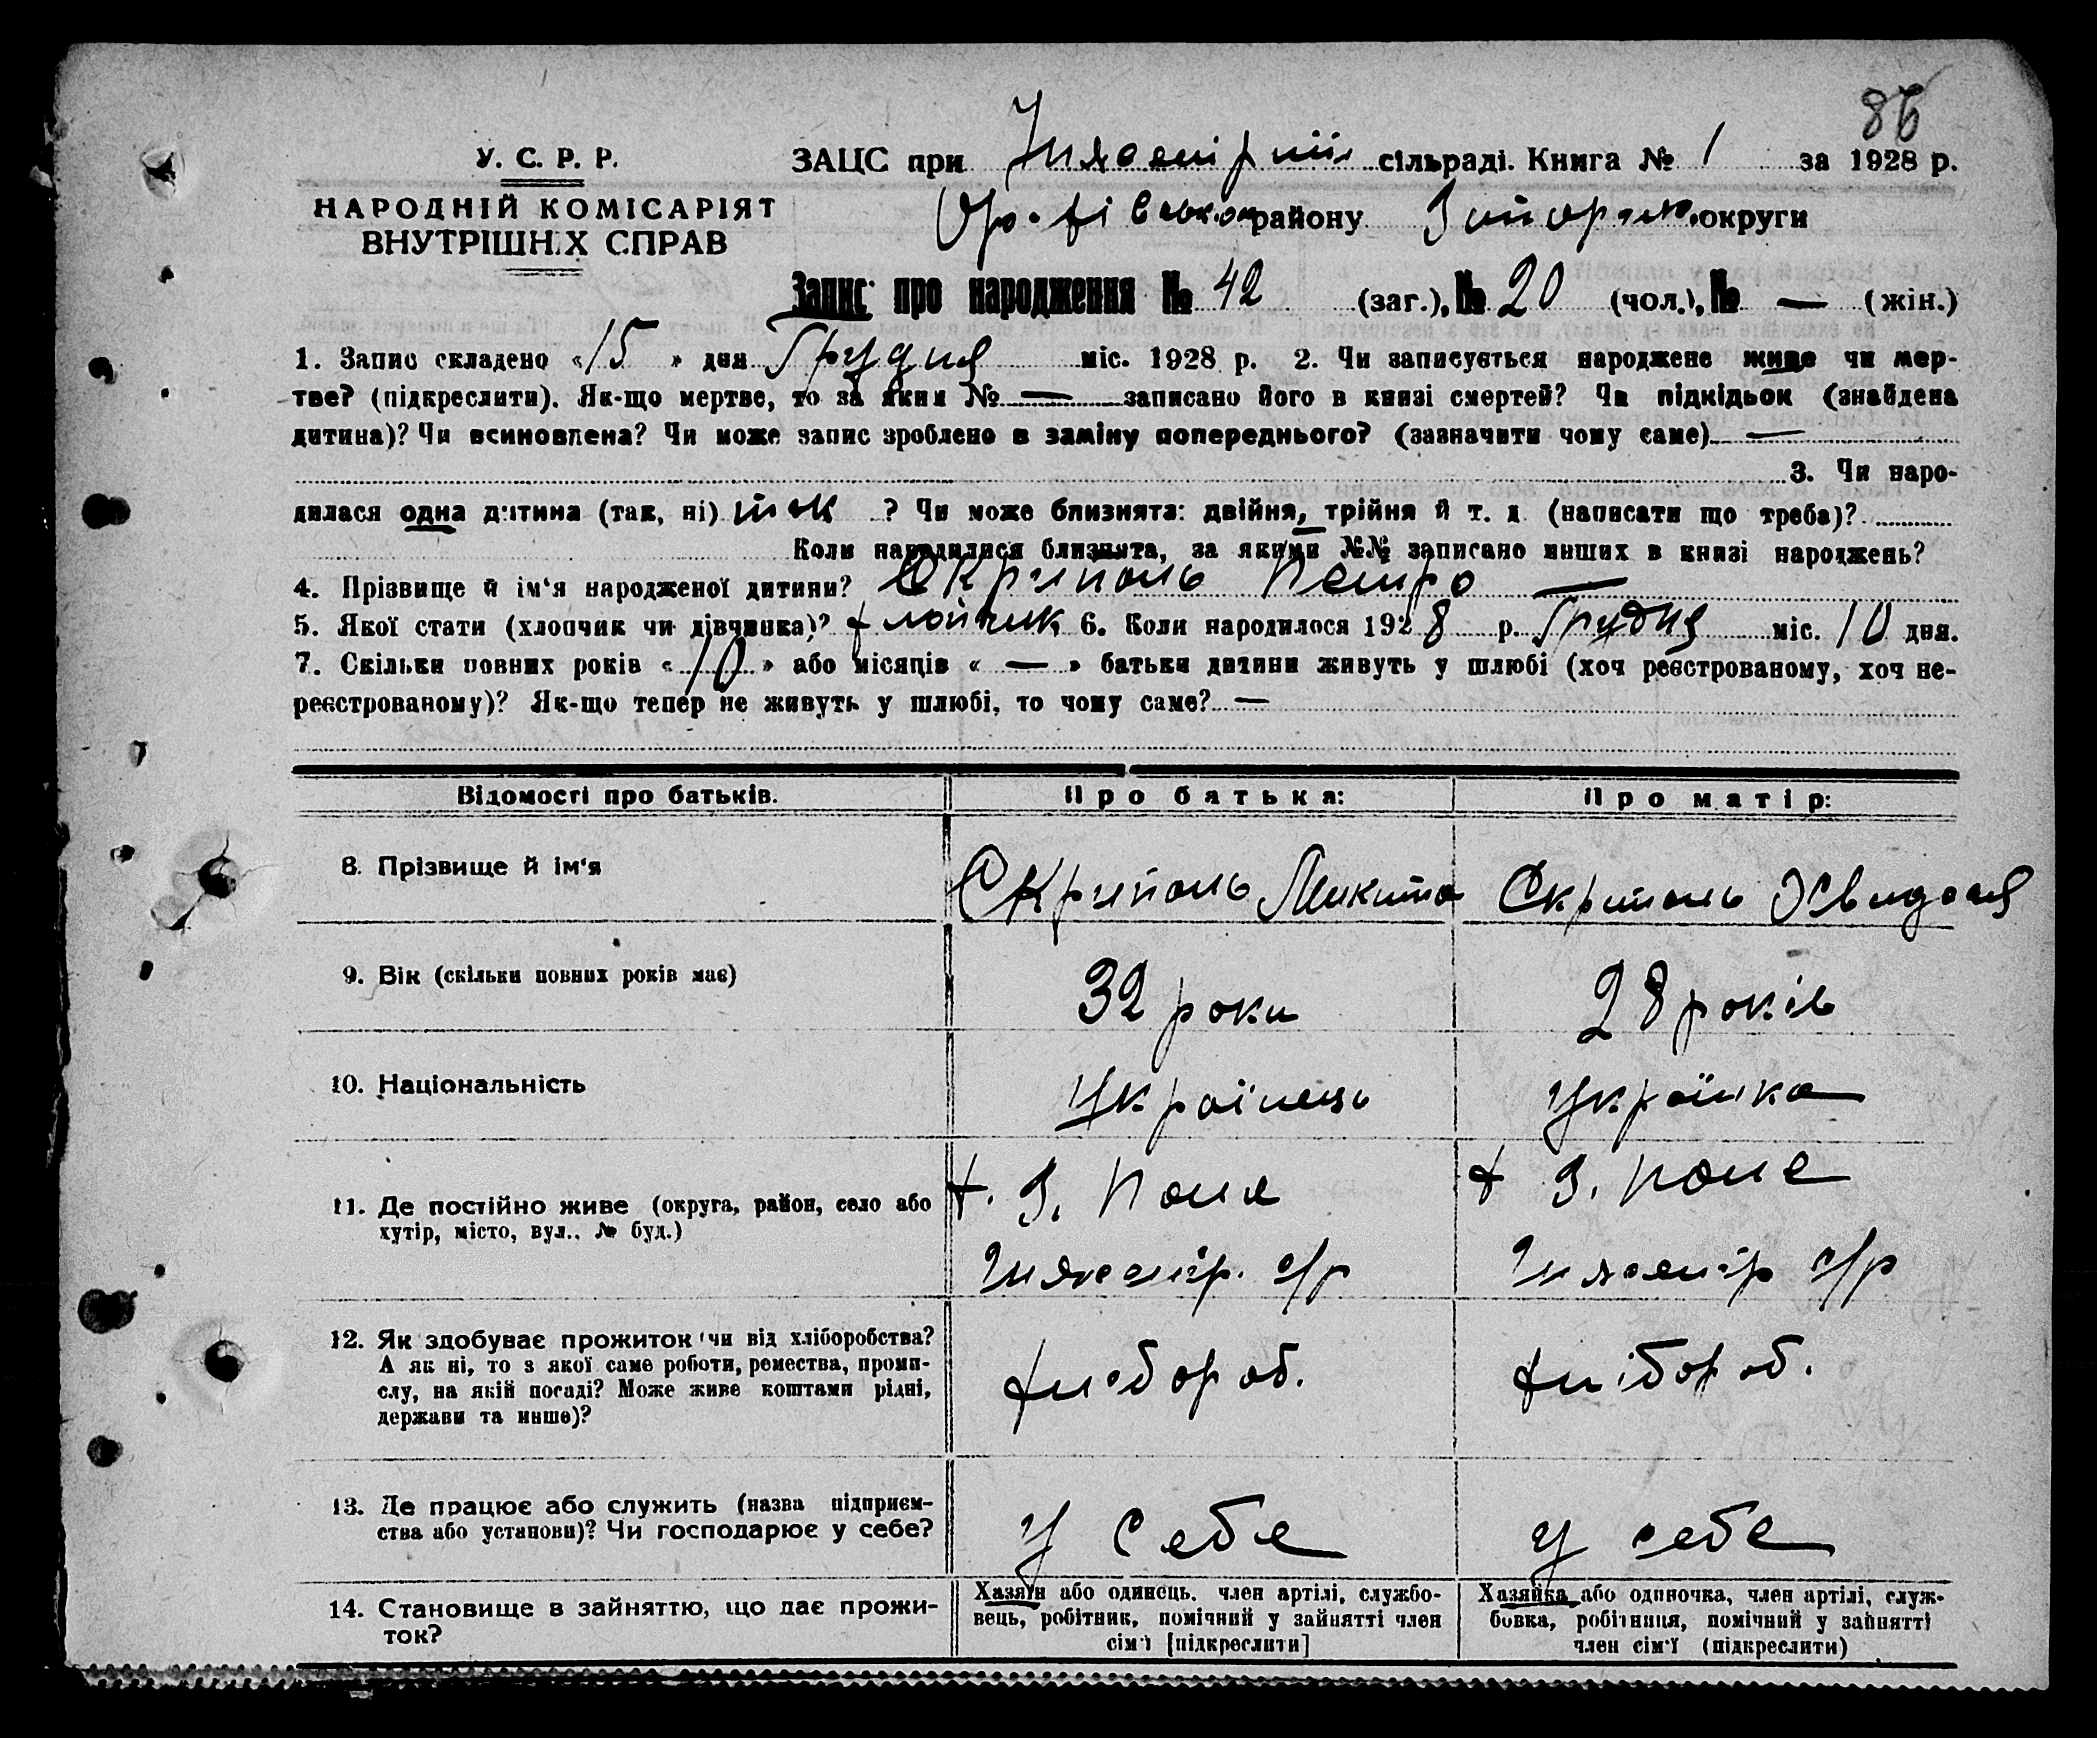 86
У. С. Р. Р.
НАРОДНІЙ КОМІСАРІЯТ
ВНУТРІШНІХ СПРАВ
ЗАЦС при сільраді. Книга № 1 за 1928 р.
району округи
Запис про народження № 42 (заг.), № 20 (чол.), № — (жін.)
1. Запис складено «15» дня Грудня міс. 1928 р. 2. Чи записується народжене живе чи мер-
тве? (підкреслити). Як-що мертве, то за яким № — записано його в книзі смертей? Чи підкідьок (знайдена
дитина)? Чи всиновлена? Чи може запис зроблено в заміну попереднього? (зазначити чому саме) —
3. Чи наро-
дилася одна дитина (так, ні) так ? Чи може близнята: двійня, трійня й т. д. (написати що треба)?
Коли народилися близнята, за якими №№ записано инших в книзі народжень?
4. Прізвище й ім'я народженої дитини? Скрипаль Петро —
5. Якої стати (хлопчик чи дівчинка)? хлопчик 6. Коли народилося 1928 р. Грудня міс. 10 дня.
7. Скільки повних років «10» або місяців « — » батьки дитини живуть у шлюбі (хоч реєстрованому, хоч не-
реєстрованому)? Як-що тепер не живуть у шлюбі, то чому саме? —
Відомості про батьків.
Про батька:
Про матір:
8. Прізвище й ім'я
Скрипаль Микита
Скрипаль
9. Вік (скільки повних років має)
32 роки
28 років
10. Національність
Українець
Українка
11. Де постійно живе (округа, район, село або
хутір, місто, вул., № буд.)
х. З. Поле
с/р
х З. Поле
с/р
12. Як здобуває прожиток чи від хліборобства?
А як ні, то з якої саме роботи, ремества, проми-
слу, на якій посаді? Може живе коштами рідні,
держави та инше)?
хлібороб.
хлібороб.
13. Де працює або служить (назва підприєм-
ства або установи)? Чи господарює у себе?
у себе
у себе
14. Становище в зайняттю, що дає прожи-
ток?
Хазяїн або одинець, член артілі, службо-
вець, робітник, помічний у зайнятті член
сім'ї [підкреслити]
Хазяйка або одиночка, член артілі, служ-
бовка, робітниця, помічний у зайнятті
член сім'ї (підкреслити)